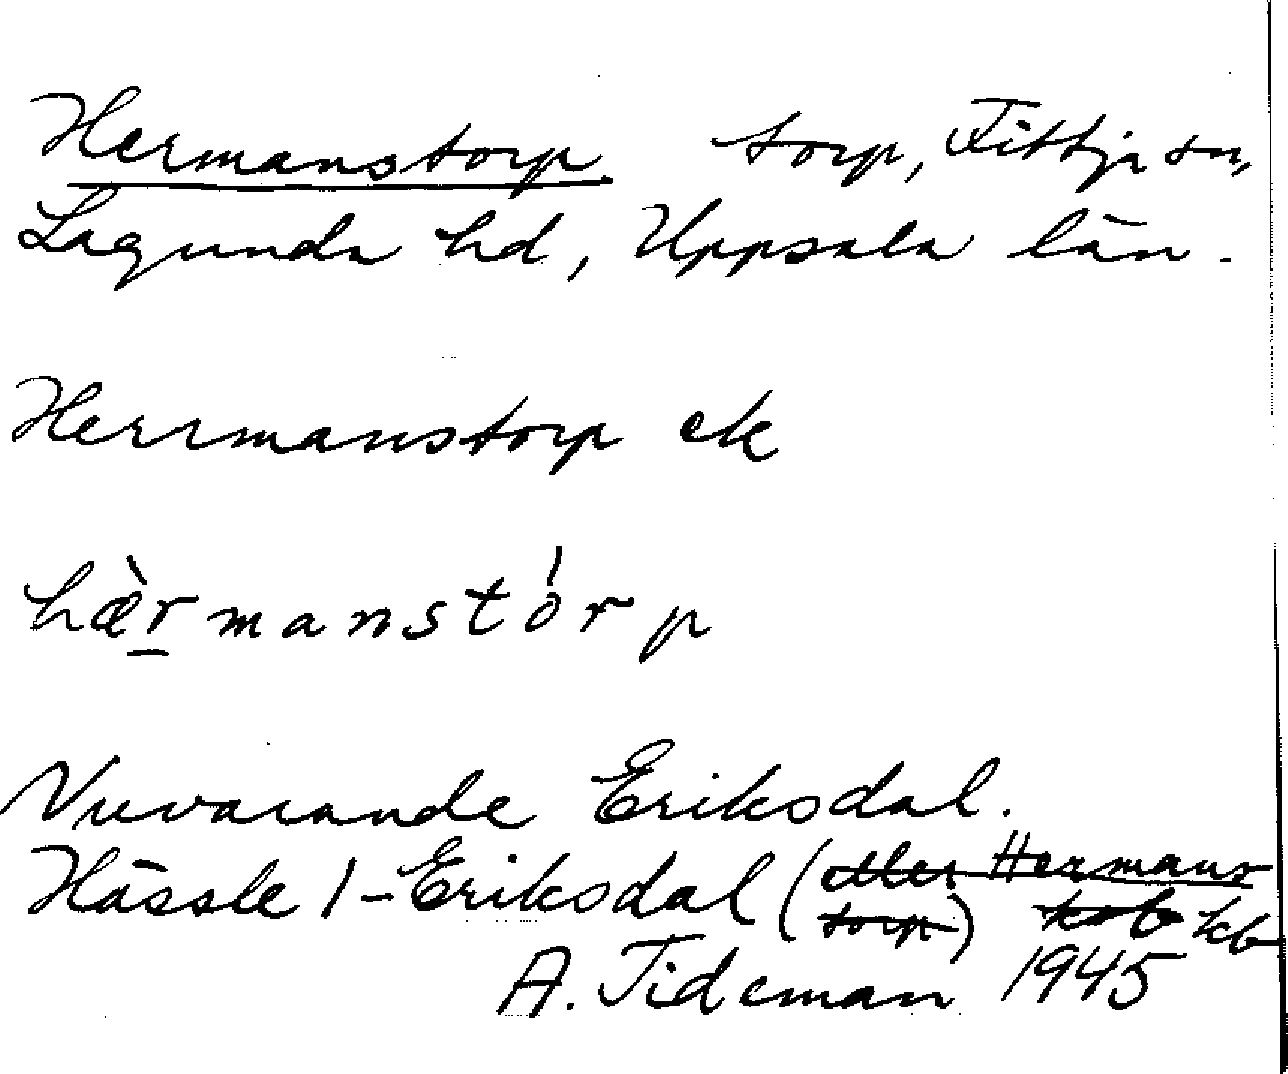 Hermanstorp. torp, Fittja sn,
Lagunda hd, Uppsala län.
Herrmanstorp ek
hæ̀rmanstórp
Nuvarande Eriksdal.
Hässle 1 - Eriksdal (eller Hermans
torp) kb
A. Tideman 1945